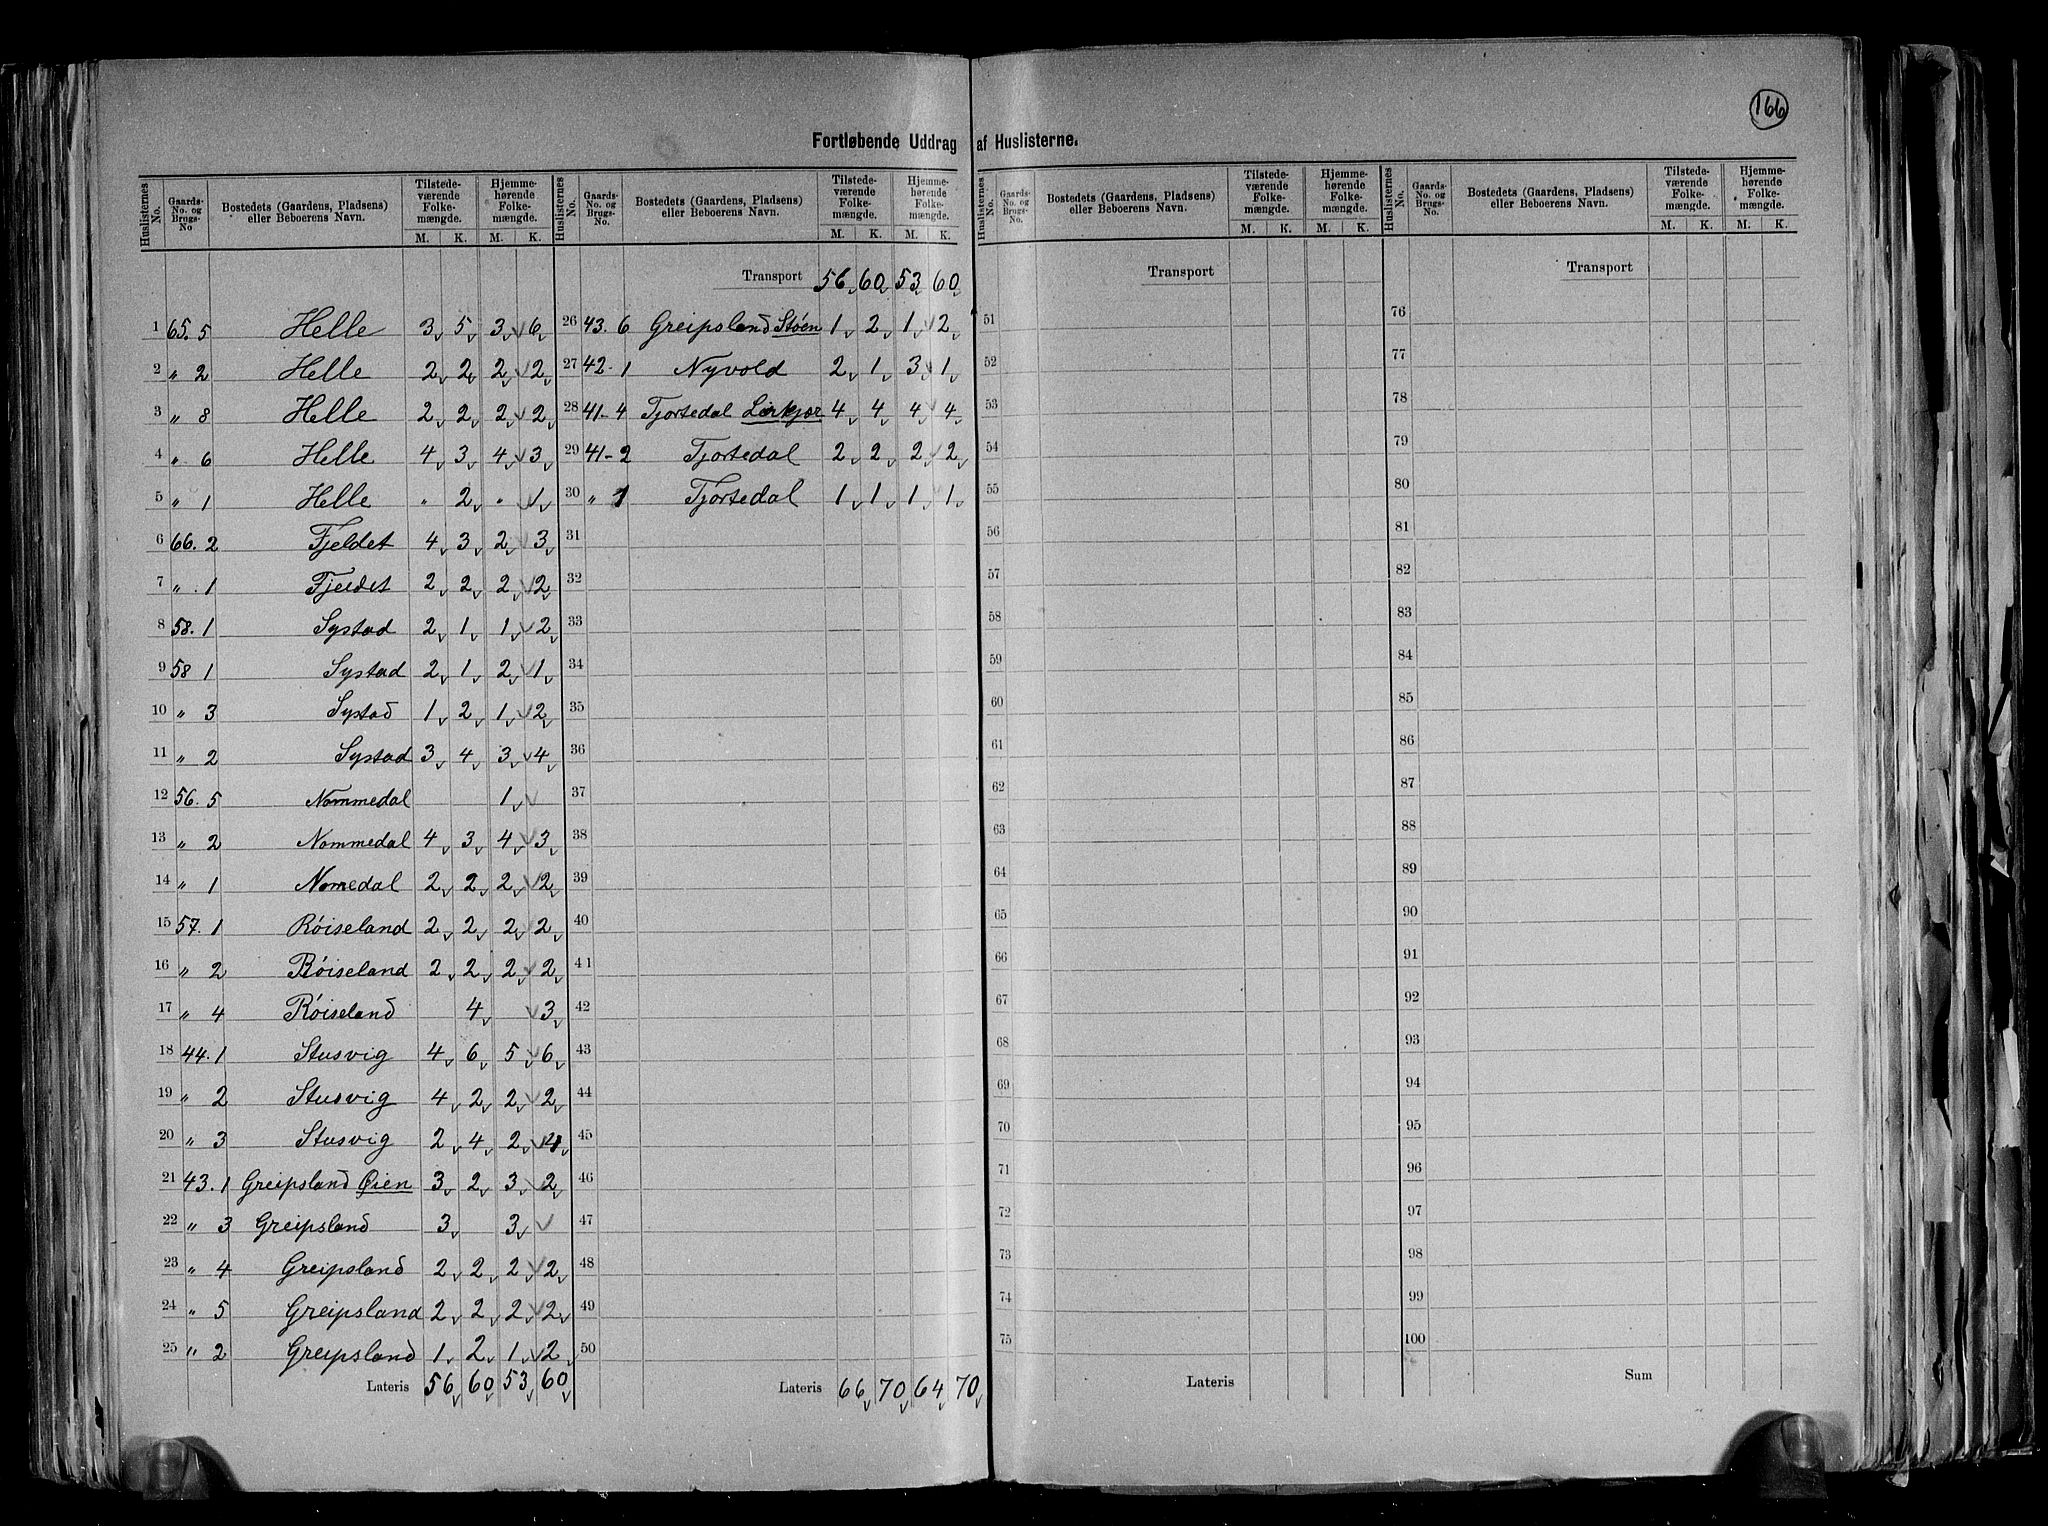 166
Fortløbende Uddrag af Huslisterne.
Huslisternes No. Gaards-No. og Brugs-No Bostedets (Gaardens, Pladsens) eller Beboerens Navn. Tilstedeværende Folkemængde. M. K. Hjemmehørende Folkemængde. M. K.
1 65. 5 Helle 3 5 3 6
2 „ 2 Helle 2 2 2 2
3 „ 8 Helle 2 2 2 2
4 „ 6 Helle 4 3 4 3
5 „ 1 Helle „ 2 „ 1
6 66. 2 Fjeldet 4 3 2 3
7 „ . 1 Fjeldet 2 2 2 2
8 58. 1 Systad 2 1 1 2
9 58 1 Systad 2 1 2 1
10 „ 3 Systad 1 2 1 2
11 „ 2 Systad 3 4 3 4
12 56. 5 Nommedal 1
13 „ 2 Nommedal 4 3 4 3
14 „ 1 Nomedal 2 2 2 2
15 57. 1 Røiseland 2 2 2 2
16 „ 2 Røiseland 2 2 2 2
17 „ 4 Røiseland 4 3
18 44. 1 Stusvig 4 6 5 6
19 „ 2 Stusvig 4 2 2 2
20 „ 3 Stusvig 2 4 2 4
21 43. 1 Greipsland Øien 3 2 3 2
22 „ 3 Greipsland 3 3
23 „ 4 Greipsland 2 2 2 2
24 „ 5 Greipsland 2 2 2 2
25 „ 2 Greipsland 1 2 1 2
Lateris 56 60 53 60
Huslisternes No. Gaards-No. og Brugs-No. Bostedets (Gaardens, Pladsens) eller Beboerens Navn. Tilstedeværende Folkemængde. M. K. Hjemmehørende Folkemængde. M. K.
Transport 56 60 53 60
26 43. 6 Greipsland Støen 1 2 1 2
27 42 - 1 Nyvold 2 1 3 1
28 41 - 4 Tjortedal Lirkjær 4 4 4 4
29 41 - 2 Tjortedal 2 2 2 2
30 „ 1 Tjortedal 1 1 1 1
31
32
33
34
35
36
37
38
39
40
41
42
43
44
45
46
47
48
49
50
Lateris 66 70 64 70
Huslisternes No. Gaards-No. og Brugs-No. Bostedets (Gaardens, Pladsens) eller Beboerens Navn. Tilstedeværende Folkemængde. M. K. Hjemmehørende Folkemængde. M. K.
Transport
51
52
53
54
55
56
57
58
59
60
61
62
63
64
65
66
67
68
69
70
71
72
73
74
75
Lateris
Huslisternes No. Gaards-No. og Brugs-No. Bostedets (Gaardens, Pladsens) eller Beboerens Navn. Tilstedeværende Folkemængde. M. K. Hjemmehørende Folkemængde. M. K.
Transport
76
77
78
79
80
81
82
83
84
85
86
87
88
89
90
91
92
93
94
95
96
97
98
99
100
Sum